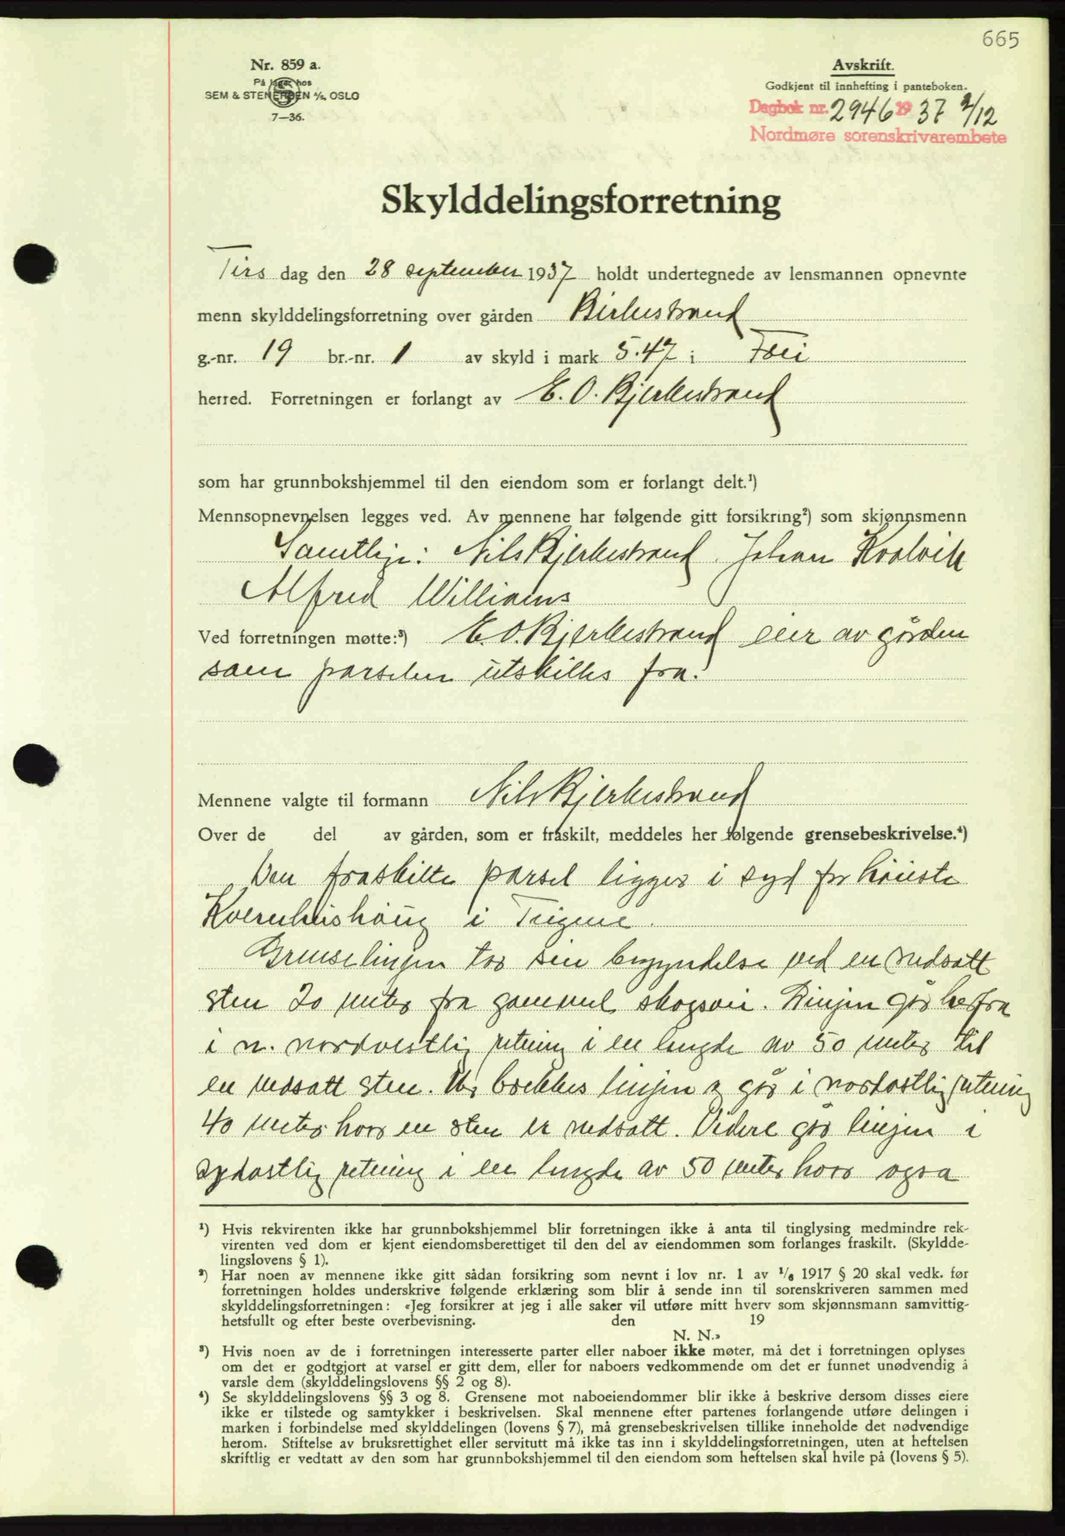 665
Nr. 859 a.
På lager hos
SEM & STENERSEN A/S, OSLO
7—36.
Avskrift.
Godkjent til innhefting i panteboken.
Dagbok nr. 2946 1937 2/12
Nordmøre sorenskrivarembete
Skylddelingsforretning
Tirs dag den 28 september 1937 holdt undertegnede av lensmannen opnevnte
menn skylddelingsforretning over gården Birkestrand
g.-nr. 19 br.-nr. 1 av skyld i mark 5.47 i Frei
herred. Forretningen er forlangt av E. O. Bjerkestrand
som har grunnbokshjemmel til den eiendom som er forlangt delt.¹)
Mennsopnevnelsen legges ved. Av mennene har følgende gitt forsikring²) som skjønnsmenn
Samtlige: Nils Bjerkestrand. Johan Kvalvik
Alfred Williams
Ved forretningen møtte:³) E. O. Bjerkestrand eier av gården
som parselen utskilles fra.
Mennene valgte til formann Nils Bjerkestrand
Over de del av gården, som er fraskilt, meddeles her følgende grensebeskrivelse.⁴)
Den fraskilte parsel ligger i syd for høieste
Kvernhushaug i
Grenselinjen tar sin begyndelse ved en nedsatt
sten 20 meter fra gammel skogsvei. Linjen går herfra
i n. nordvestlig retning i en lengde av 50 meter til
en nedsatt sten. Her brekkes linjen og går i nordøstlig retning
40 meter hvor en sten er nedsatt. Videre går linjen i
sydøstlig retning i en lengde av 50 meter hvor også
¹) Hvis rekvirenten ikke har grunnbokshjemmel blir forretningen ikke å anta til tinglysing medmindre rek-
virenten ved dom er kjent eiendomsberettiget til den del av eiendommen som forlanges fraskilt. (Skyldde-
lingslovens § 1).
²) Har noen av mennene ikke gitt sådan forsikring som nevnt i lov nr. 1 av 1/6 1917 § 20 skal vedk. før
forretningen holdes underskrive følgende erklæring som blir å sende inn til sorenskriveren sammen med
skylddelingsforretningen: «Jeg forsikrer at jeg i alle saker vil utføre mitt hverv som skjønnsmann samvittig-
hetsfullt og efter beste overbevisning. den 19
N. N.»
³) Hvis noen av de i forretningen interesserte parter eller naboer ikke møter, må det i forretningen oplyses
om det er godtgjort at varsel er gitt dem, eller for naboers vedkommende om det er funnet unødvendig å
varsle dem (skylddelingslovens §§ 2 og 8).
⁴) Se skylddelingslovens §§ 3 og 8. Grensene mot naboeiendommer blir ikke å beskrive dersom disses eiere
ikke er tilstede og samtykker i beskrivelsen. Skal mennene efter partenes forlangende utføre delingen i
marken i forbindelse med skylddelingen (lovens § 7), må grensebeskrivelsen tillike inneholde det nødvendige
herom. Stiftelse av bruksrettighet eller servitutt må ikke tas inn i skylddelingsforretningen, uten at heftelsen
skriftlig er vedtatt av den som har grunnbokshjemmel til den eiendom som heftelsen skal hvile på (lovens § 5).